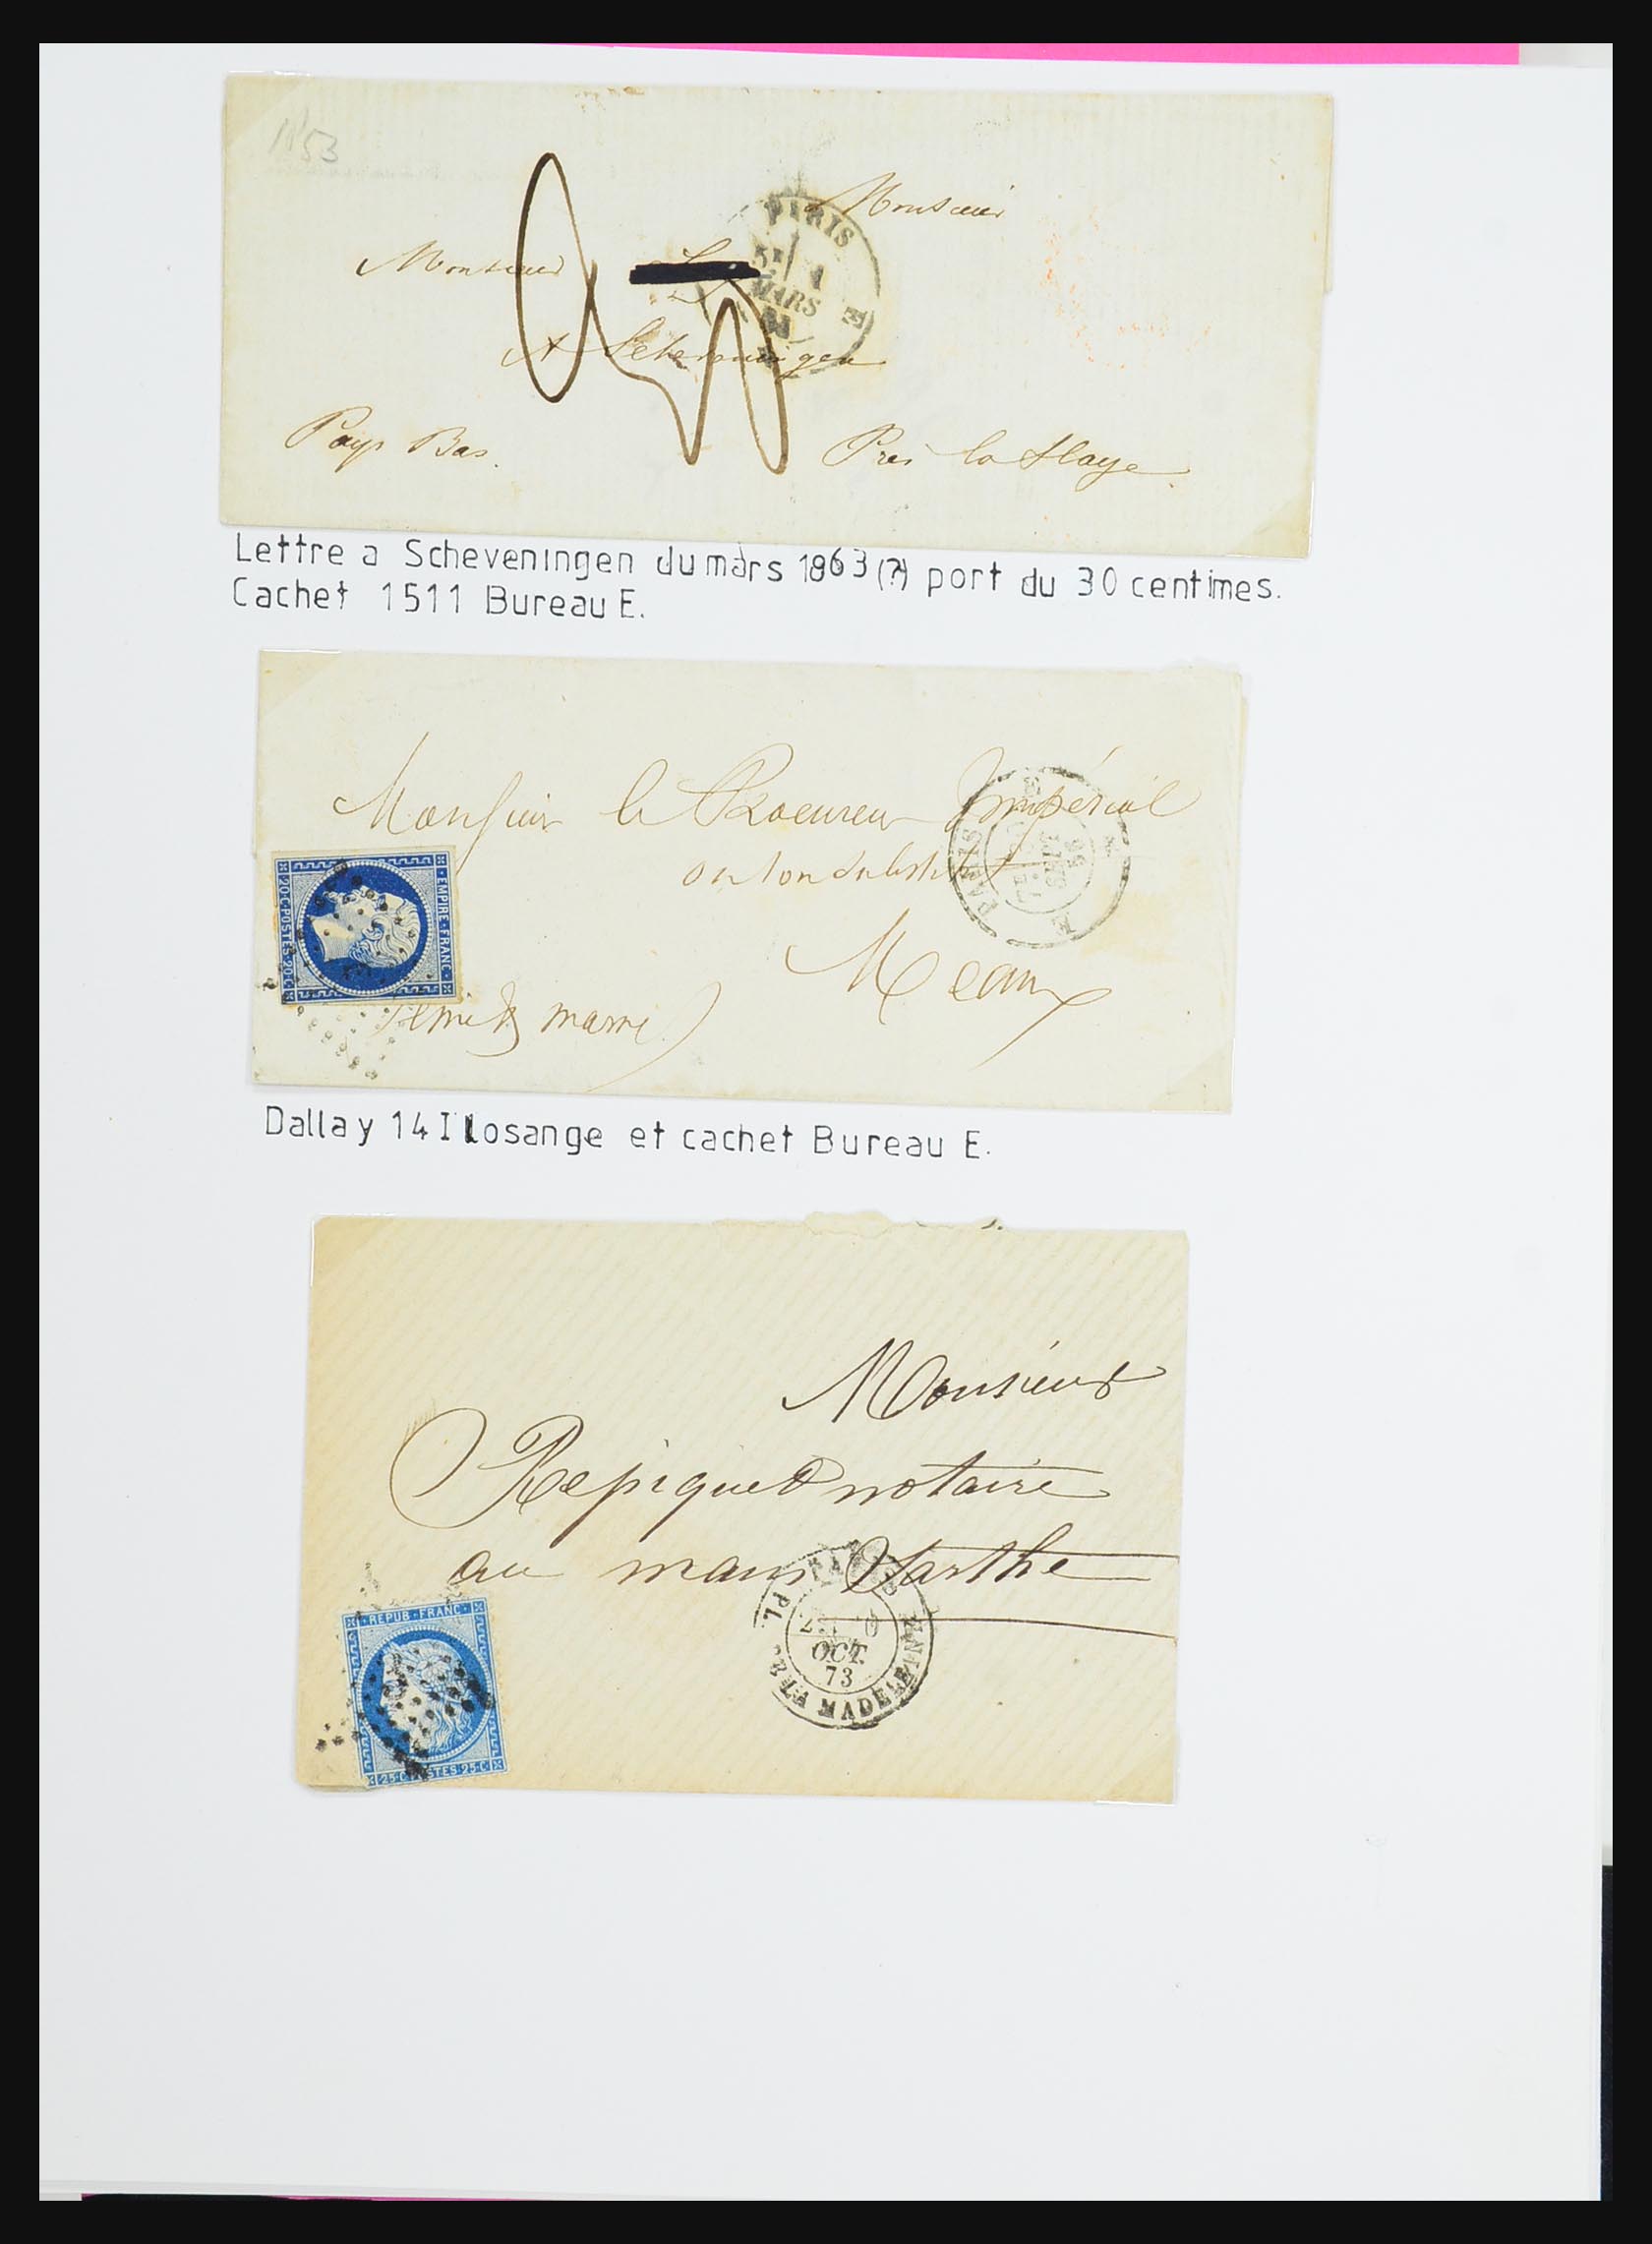 1153
Monsieur
PARIS
1
MARS
E
Monsieur
A Scheveningen
Pays Bas.
Près la Haye
Lettre a Scheveningen du mars 1863 (?) port du 30 centimes.
Cachet 1511 Bureau E.
Monsieur le Procureur Impérial
ou son substitut
Meaux
Seine & marne)
PARIS
E
EMPIRE · FRANC ·
20 · C · POSTES · 20 · C
Dallay 14 I losange et cachet Bureau E.
Monsieur
Repiquet notaire
au mans Sarthe
PL. DE LA MADELEINE
OCT.
73
REPUB · FRANC ·
25 · C POSTES · 25 · C